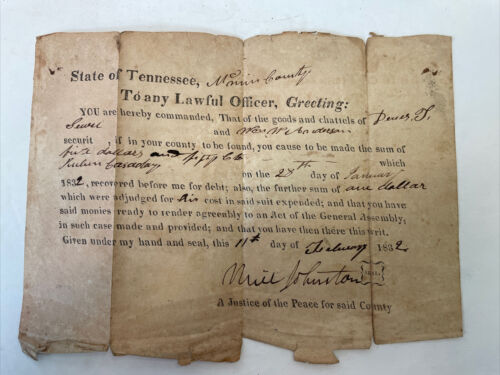 State of Tennessee, McMinn County
To any Lawful Officer, Greeting:
YOU are hereby commanded, That of the goods and chattels of
and Wm W Anderson
securit if in your county to be found, you cause to be made the sum of
five dollars and fifty Cts which
on the 28th day of January
1832, recovered before me for debt; also, the further sum of one dollar
which were adjudged for his cost in said suit expended; and that you have
said monies ready to render agreeably to an Act of the General Assembly;
in such case made and provided; and that you have then there this writ.
Given under my hand and seal, this 11th day of February 1832
Johnston
A Justice of the Peace for said County